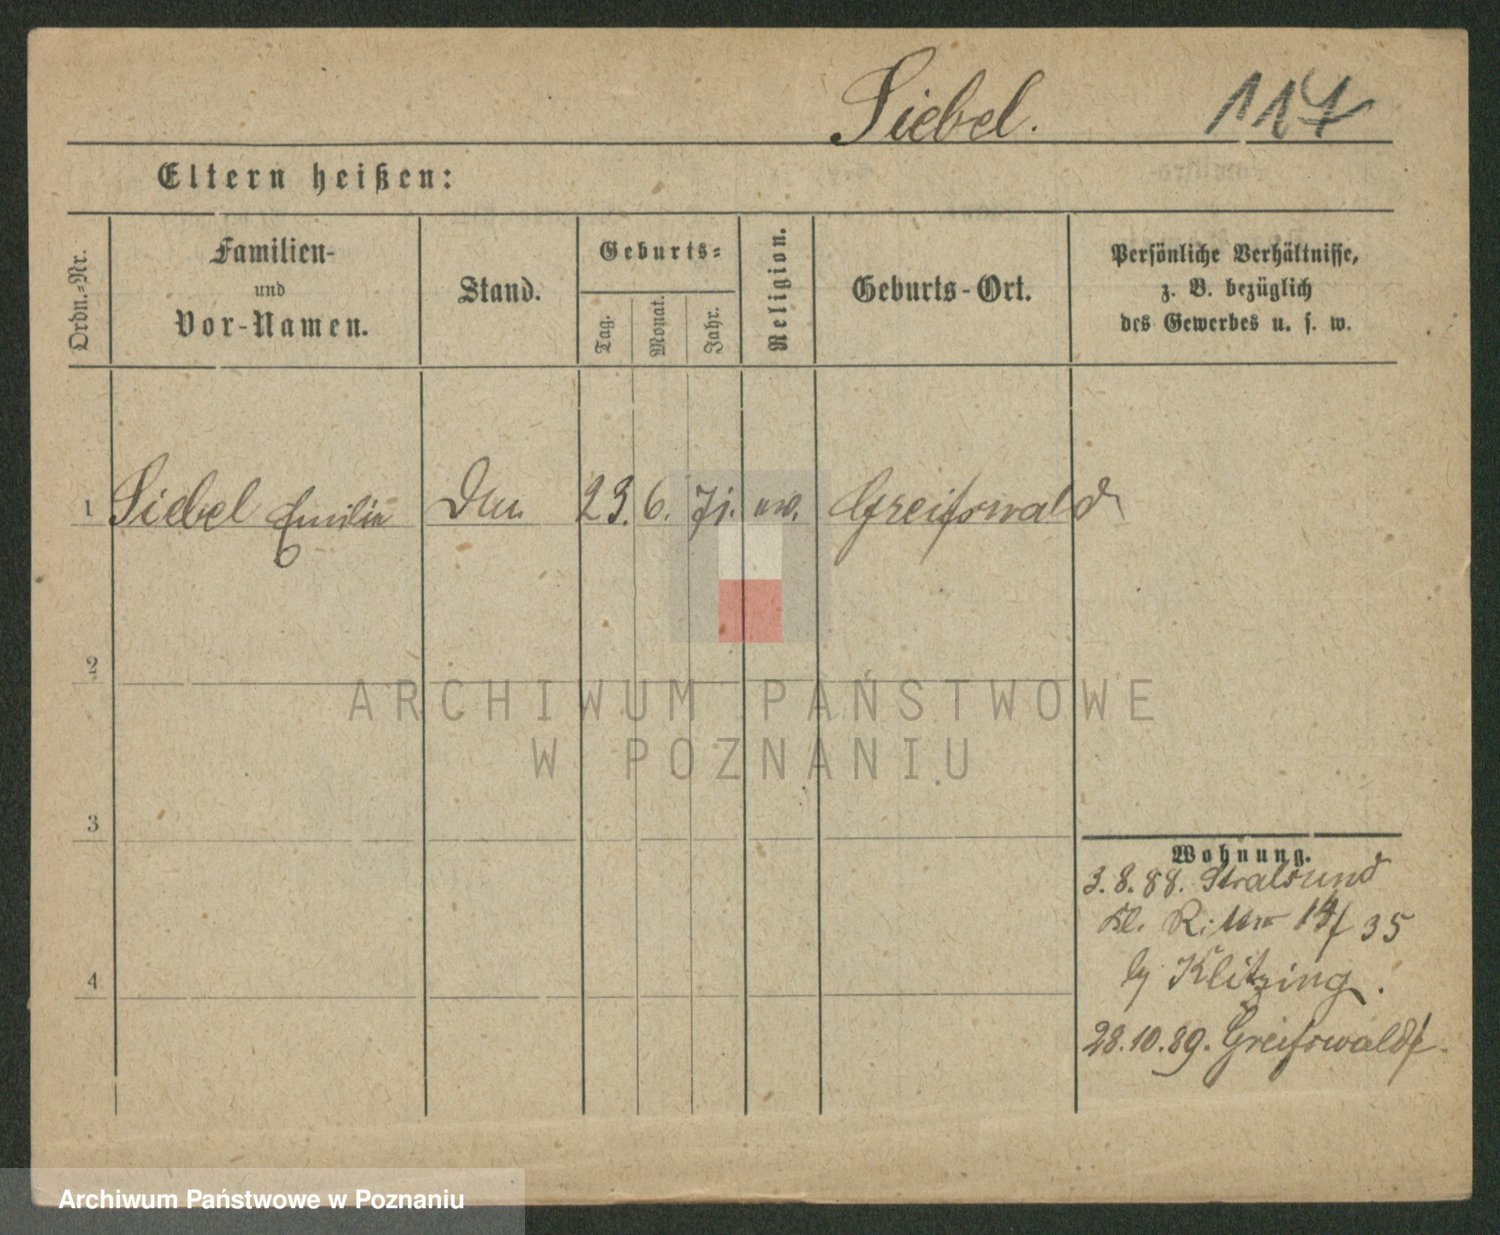 Siebel. 117
Eltern heißen:
Ordn.-Nr.
Familien-
und
Vor-Namen.
Stand.
Geburts-
Tag.
Monat.
Jahr.
Religion.
Geburts-Ort.
Persönliche Verhältnisse,
z. B. bezüglich
des Gewerbes u. s. w.
1 Siebel Emilie 23. 6. Greifswald
2
3
4
Wohnung.
3. 8. 88. Stralsund
Kl. 14/35
Klitzing.
28. 10. 89. Greifswald
ARCHIWUM PAŃSTWOWE
W POZNANIU
Archiwum Państwowe w Poznaniu